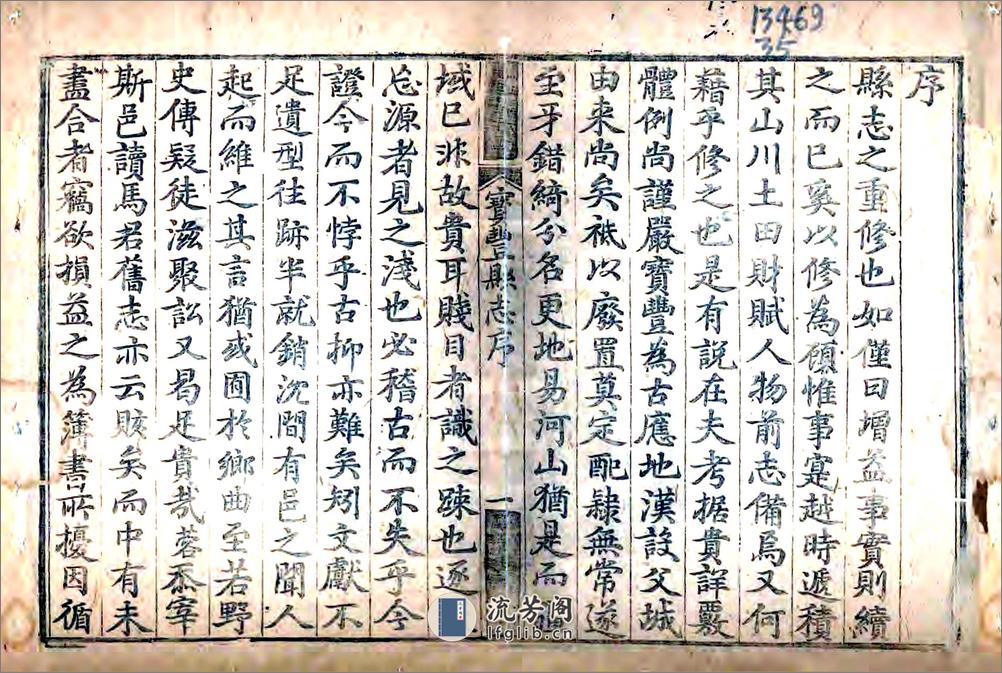 13469
35
序
縣志之重修也如僅曰增益事實則續
之而已奚以修為顧惟事寔越時遞積
其山川土田財賦人物前志備焉又何
藉乎修之也是有說在夫考据貴詳覈
體例尚謹嚴寶豐為古應地漢設父城
由来尚矣祗以廢置莫定配隷無常遂
至牙錯綺分名更地易河山猶是而
寶豐縣志序
一
域已非故貴耳賤目者識之踈也逐
忘源者見之淺也必稽古而不失乎今
證今而不悖乎古抑亦難矣矧文獻不
足遺型往跡半就銷沈間有邑之聞人
起而維之其言猶或囿於鄉曲至若野
史傳疑徒滋聚訟又曷足貴哉蓉忝宰
斯邑讀馬君舊志亦云賅矣而中有未
盡合者竊欲損益之為簿書所擾因循
流芳阁
lfglib.cn